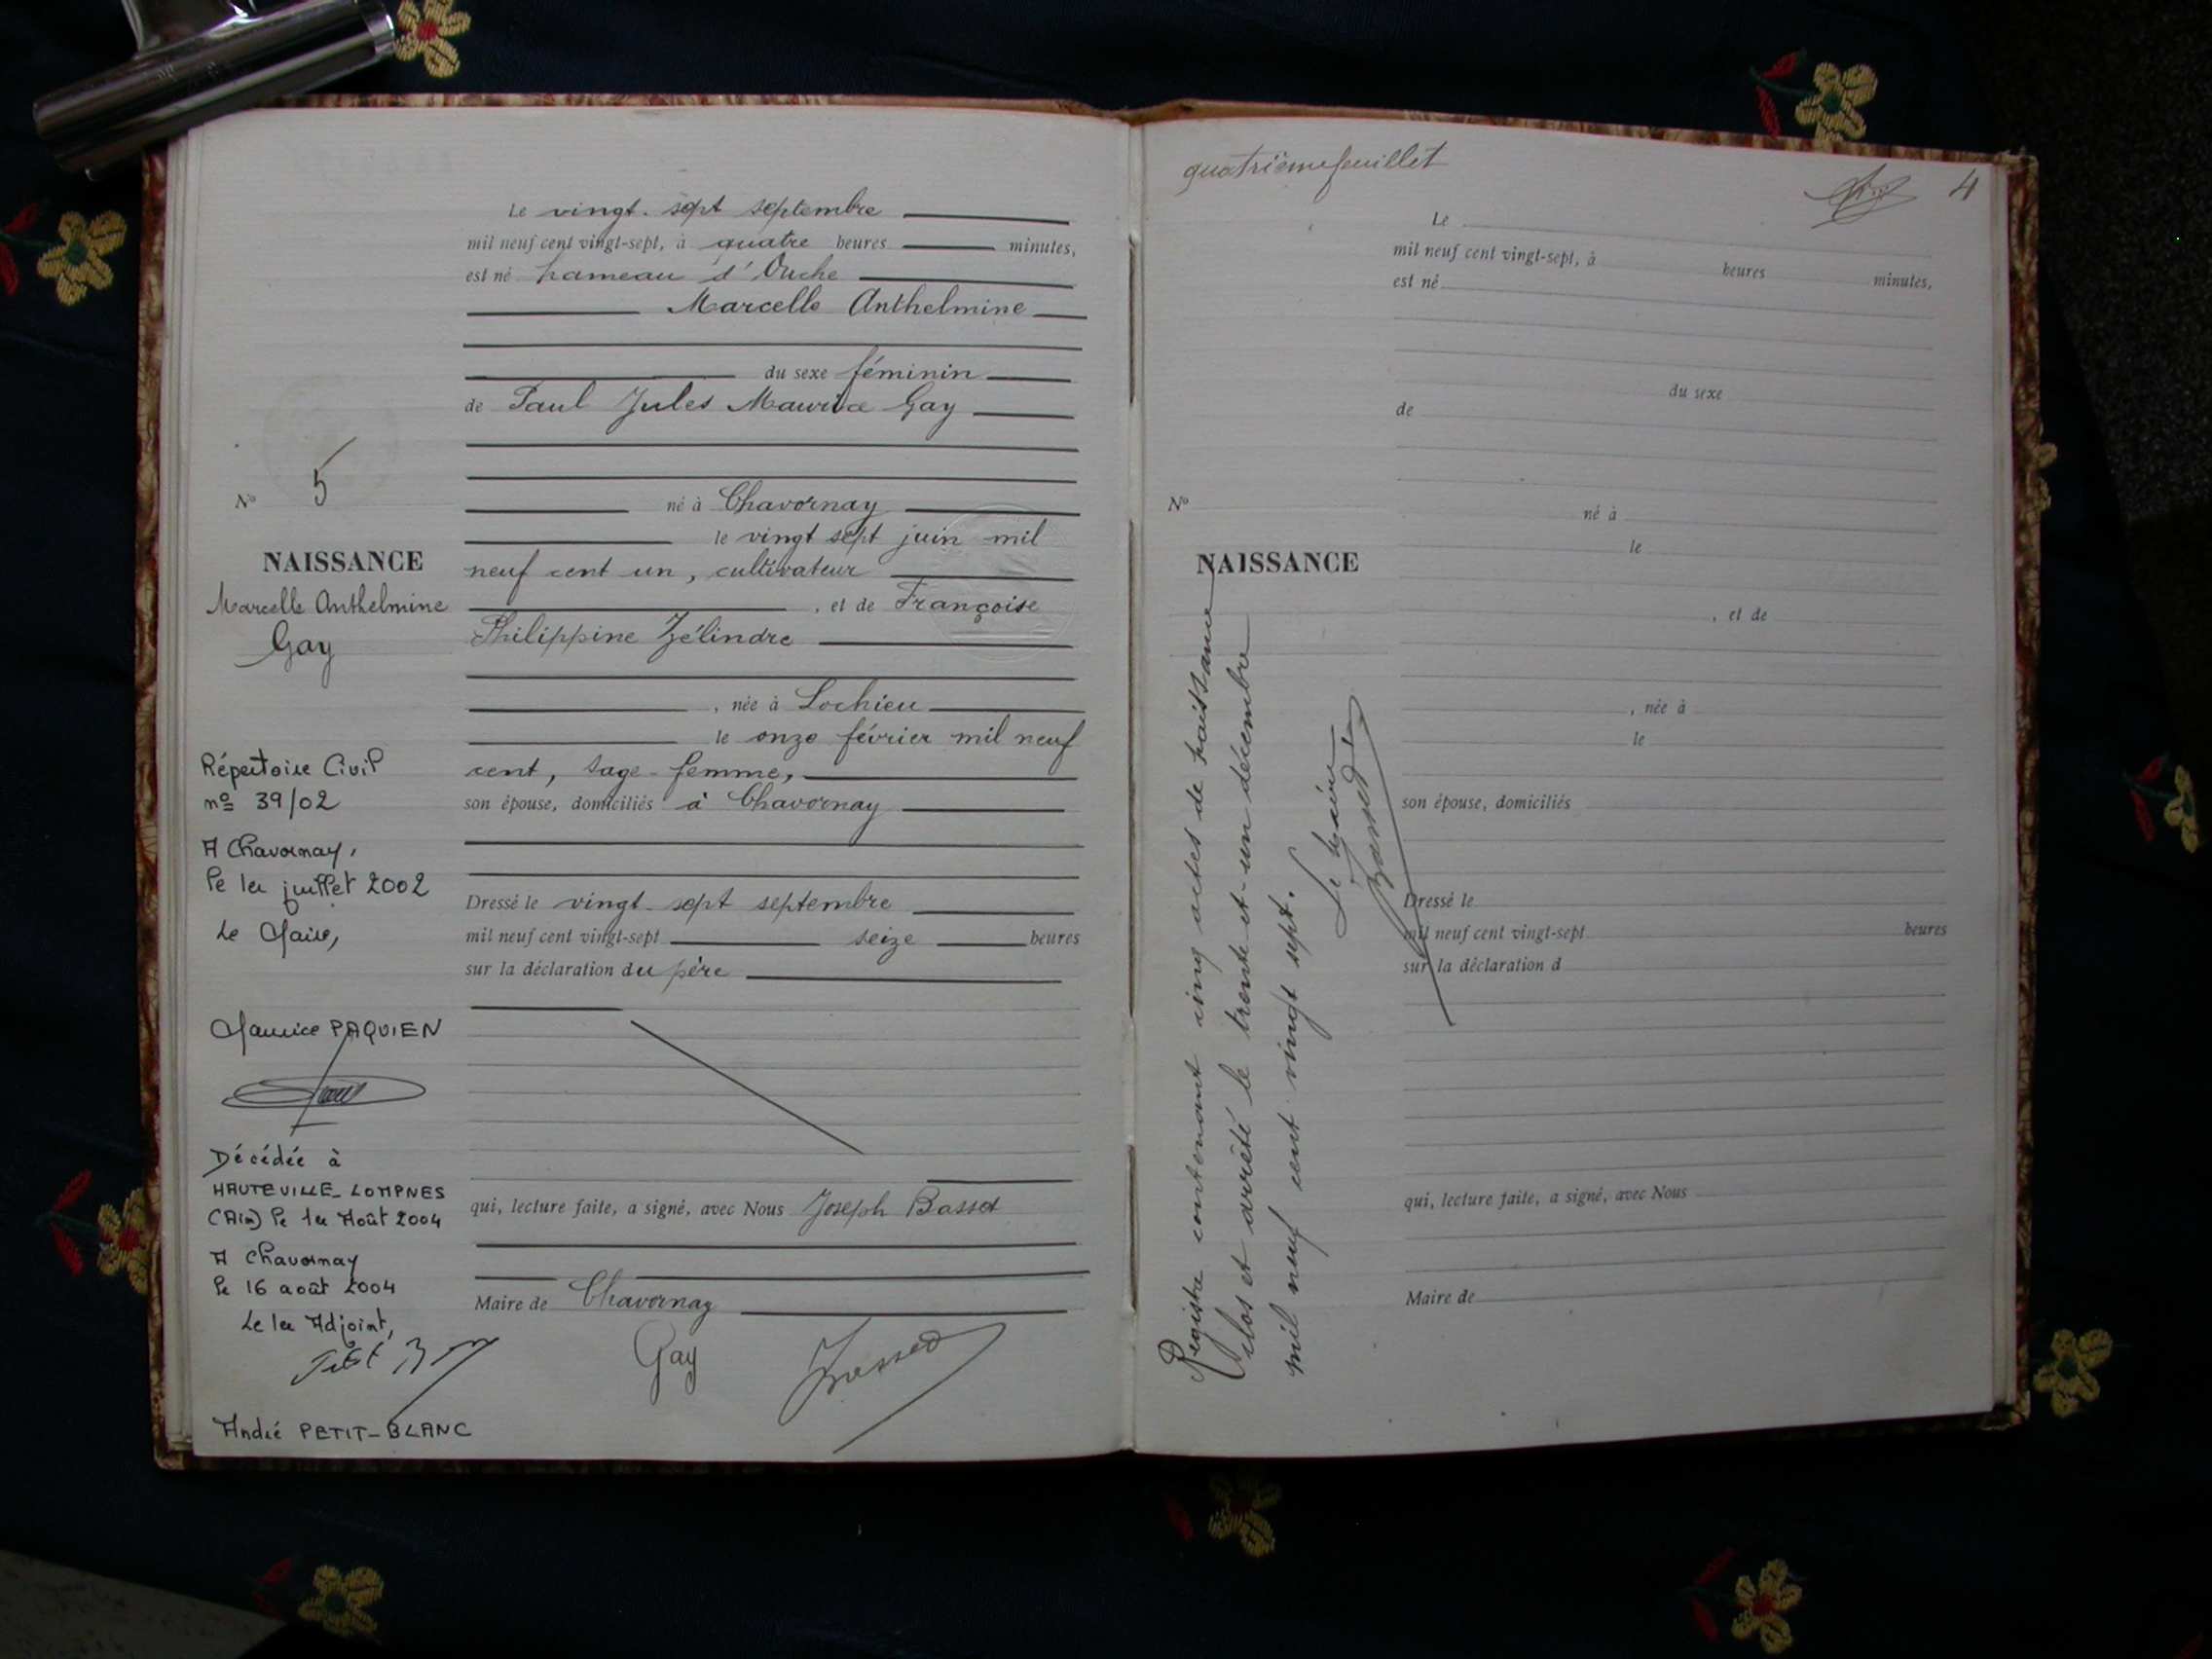 Le vingt-sept septembre
mil neuf cent vingt-sept, à quatre heures minutes,
est né hameau d'Ouche
Marcelle Anthelmine
du sexe féminin
de Paul Jules Maurice Gay
né à Chavornay
le vingt sept juin mil
neuf cent un, cultivateur
, et de Françoise
Philippine Zélindre
, née à Lochieu
le onze février mil neuf
cent, sage-femme,
son épouse, domiciliés à Chavornay
Dressé le vingt-sept septembre
mil neuf cent vingt-sept seize heures
sur la déclaration du père
qui, lecture faite, a signé, avec Nous Joseph Basset
Maire de Chavornay
Gay Basset
No 5
NAISSANCE
Marcelle Anthelmine
Gay
Répertoire Civil
no 39/02
A Chavornay,
le 1er juillet 2002
Le Maire,
Maurice PAQUIEN
Décédée à
HAUTEVILLE-LOMPNES
(Ain) le 1er Août 2004
A Chavornay
le 16 août 2004
Le 1er Adjoint,
André PETIT-BLANC
quatrième feuillet
4
Le
mil neuf cent vingt-sept, à heures minutes,
est né
du sexe
de
No
né à
le
NAISSANCE
, et de
, née à
le
son épouse, domiciliés
Dressé le
mil neuf cent vingt-sept heures
sur la déclaration d
qui, lecture faite, a signé, avec Nous
Maire de
Registre contenant cinq actes de naissance
clos et arrêté le trente-et-un décembre
mil neuf cent vingt sept.
Le Maire
Basset